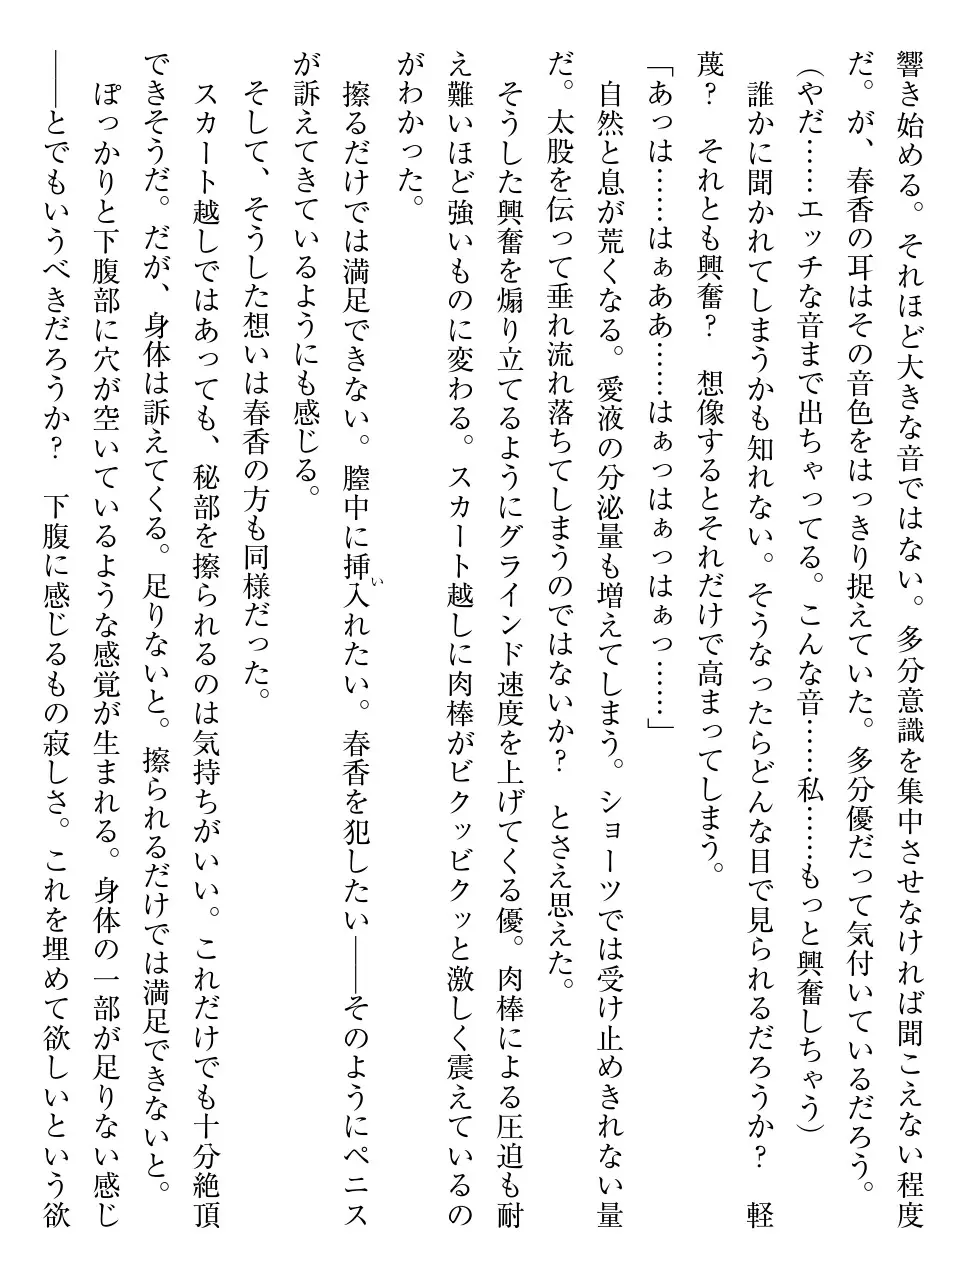 響き始める。それほど大きな音ではない。多分意識を集中させなければ聞こえない程度
だ。が、春香の耳はその音色をはっきり捉えていた。多分優だって気付いているだろう。
(やだ……エッチな音まで出ちゃってる。こんな音……私……もっと興奮しちゃう)
誰かに聞かれてしまうかも知れない。そうなったらどんな目で見られるだろうか? 軽
蔑? それとも興奮? 想像するとそれだけで高まってしまう。
「あっは……はぁああ……はぁっはぁっはぁっ……」
自然と息が荒くなる。愛液の分泌量も増えてしまう。ショーツでは受け止めきれない量
だ。太股を伝って垂れ流れ落ちてしまうのではないか? とさえ思えた。
そうした興奮を煽り立てるようにグラインド速度を上げてくる優。肉棒による圧迫も耐
え難いほど強いものに変わる。スカート越しに肉棒がビクッビクッと激しく震えているの
がわかった。
擦るだけでは満足できない。膣中に挿入れたい。春香を犯したい――そのようにペニス
が訴えてきているようにも感じる。
そして、そうした想いは春香の方も同様だった。
スカート越しではあっても、秘部を擦られるのは気持ちがいい。これだけでも十分絶頂
できそうだ。だが、身体は訴えてくる。足りないと。擦られるだけでは満足できないと。
ぽっかりと下腹部に穴が空いているような感覚が生まれる。身体の一部が足りない感じ
――とでもいうべきだろうか? 下腹に感じるもの寂しさ。これを埋めて欲しいという欲